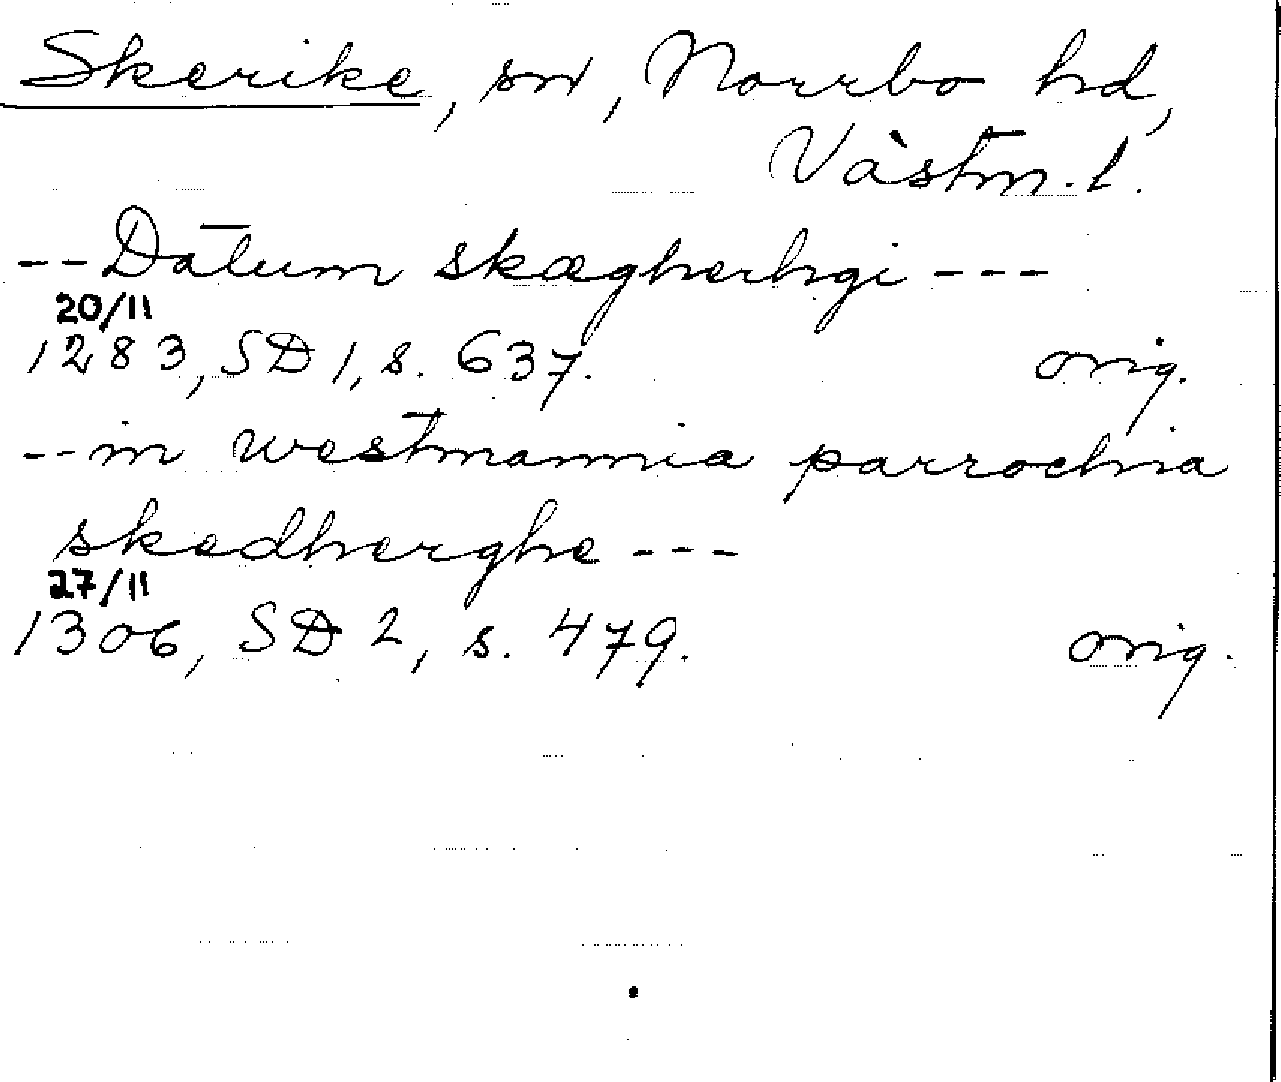 Skerike, sn, Norrbo hd,
Västm. l.
--Datum skægherhgi---
20/11
1283, SD 1, s. 637. orig.
--in westmannia parrochia
skedherghe---
27/11
1306, SD 2, s. 479. orig.